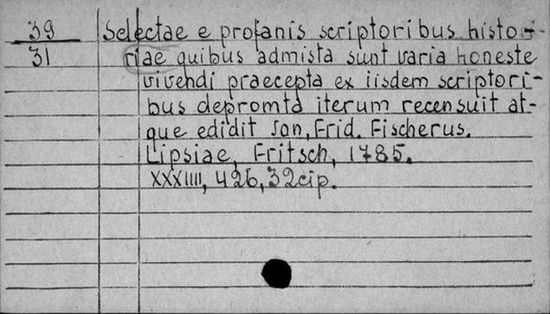 39 Selectae e profanis scriptoribus histo-
31 riae quibus admista sunt varia honeste
vivendi praecepta ex iisdem scriptori-
bus depromta iterum recensuit at-
que edidit Ion, Frid. Fischerus.
Lipsiae, Fritsch, 1785.
XXXIIII, 426, 32cip.